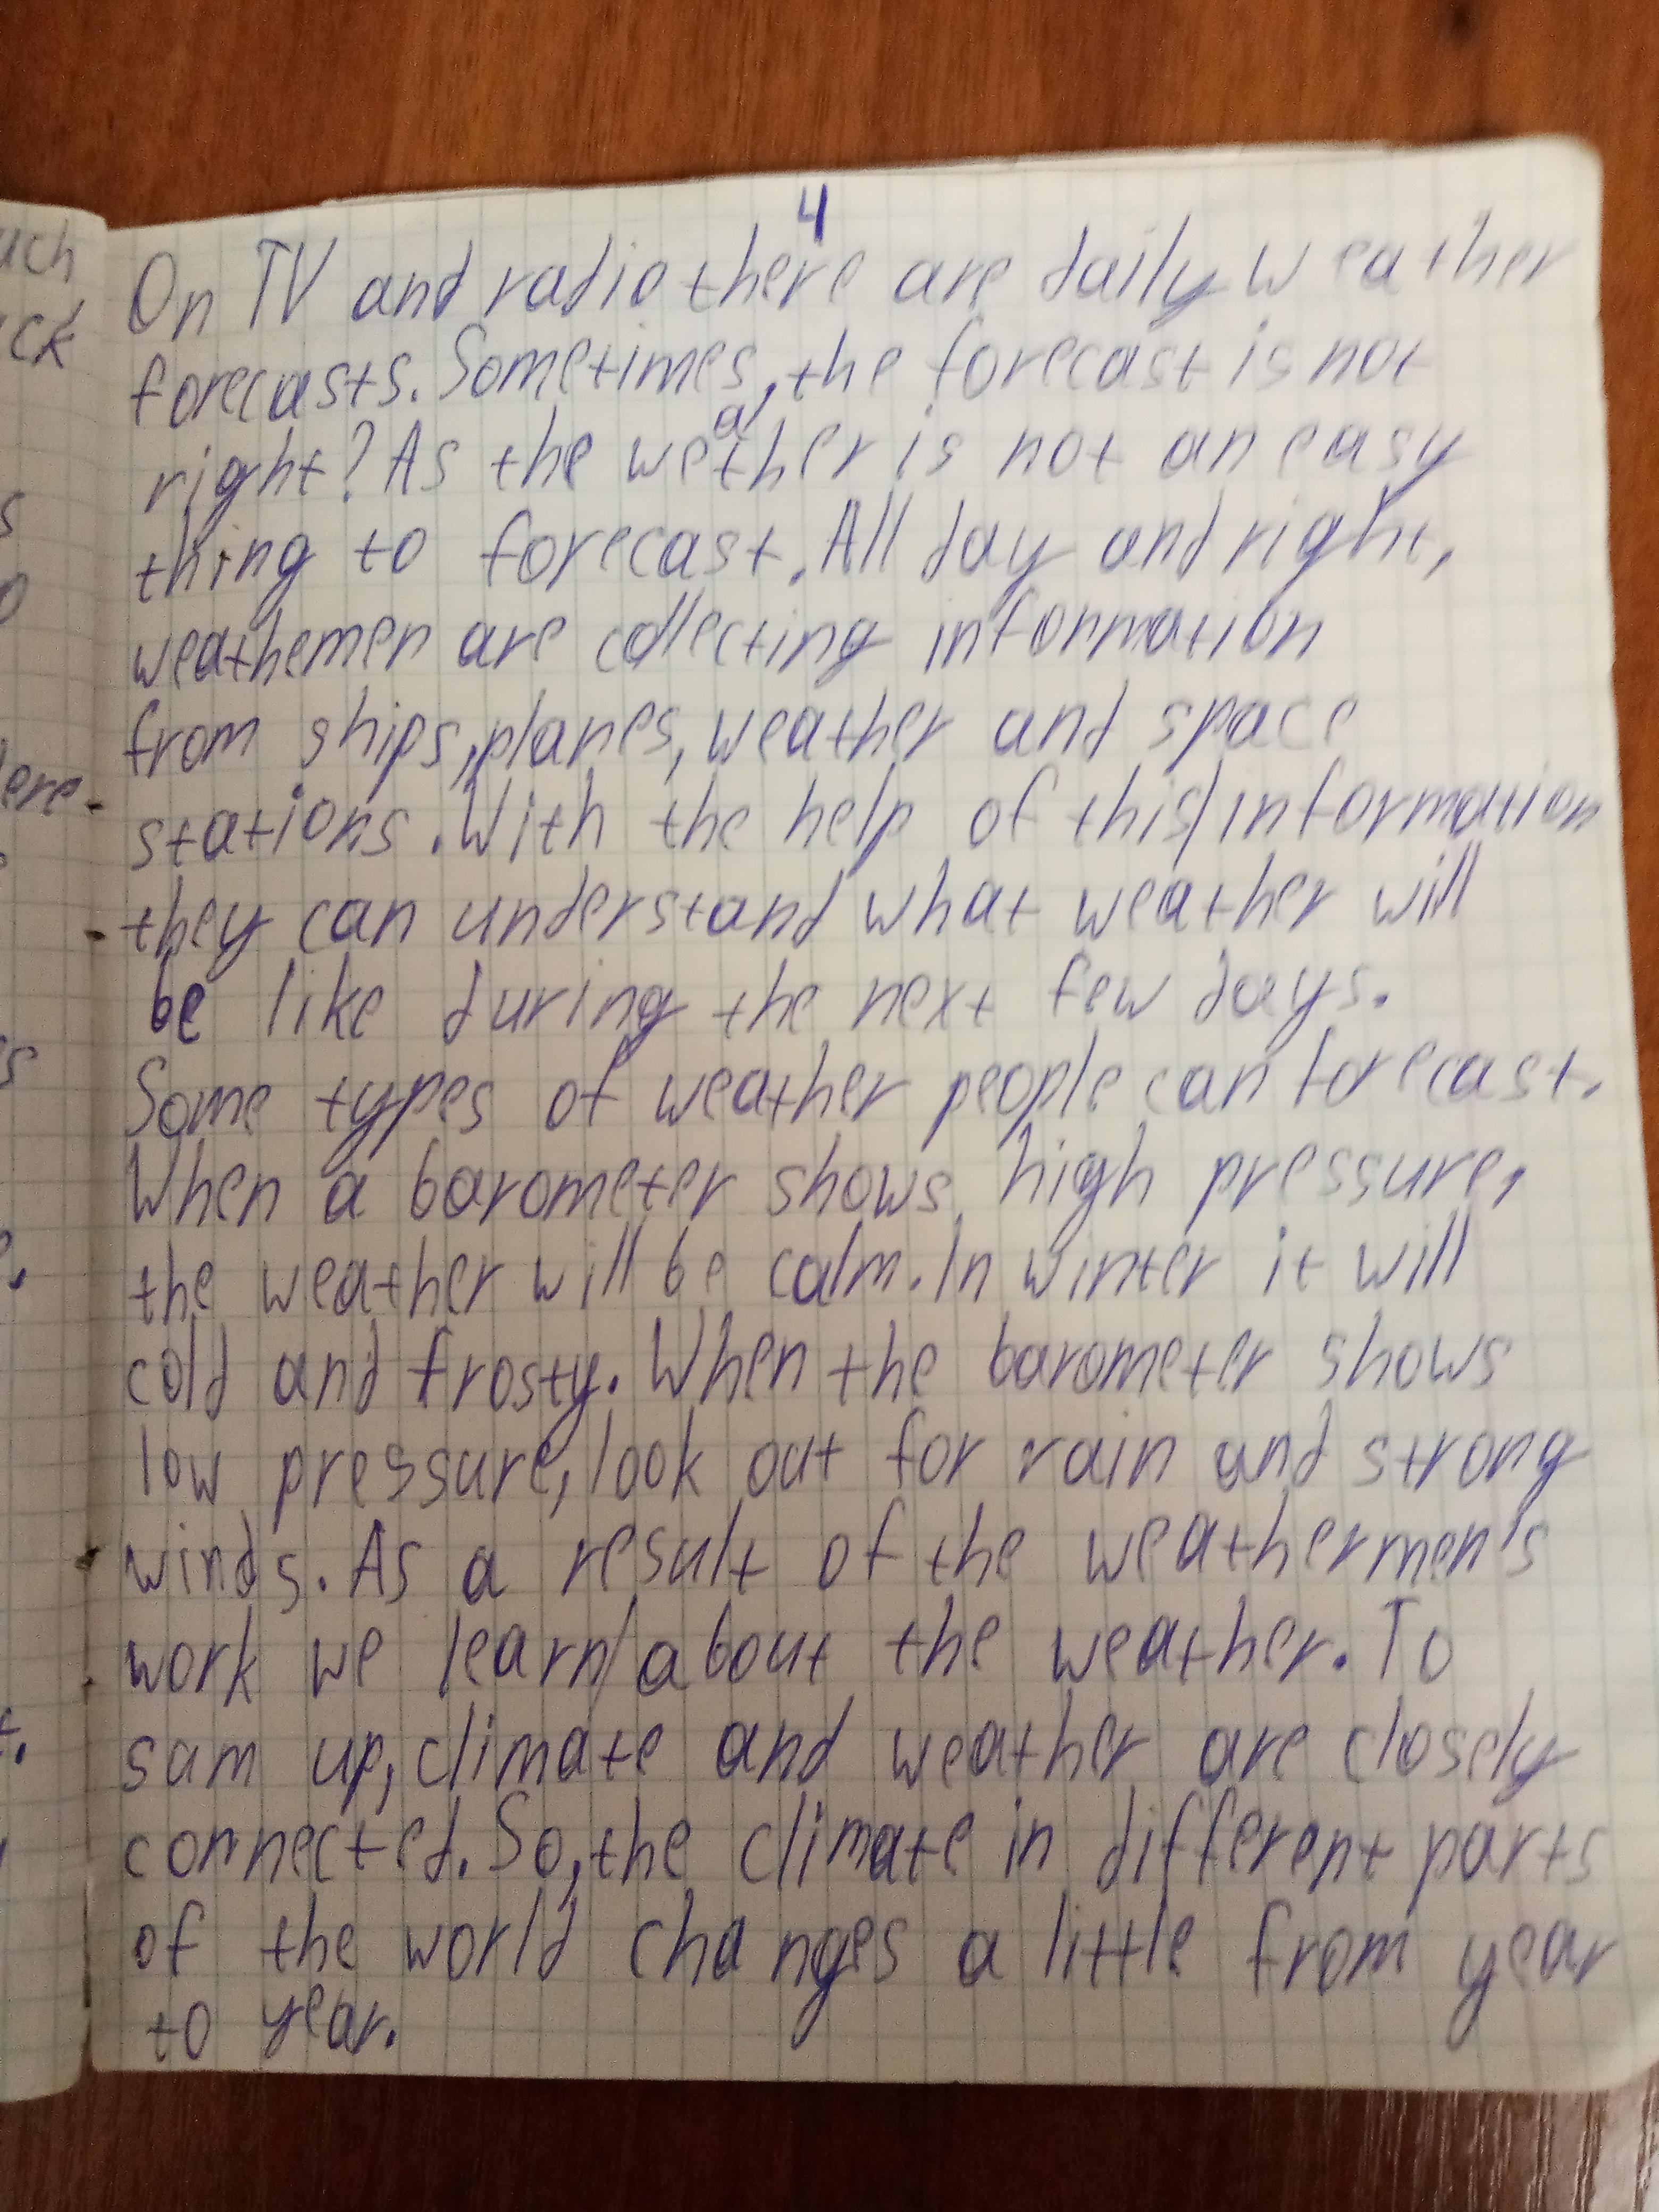 4
On TV and radio there are daily weather
forecasts. Sometimes, the forecast is not
right? As the weather is not an easy
thing to forecast. All day and right,
weathemen are collecting information
from ships, planes, weather and space
stations. With the help of this/information
they can understand what weather will
be like during the next few days.
Some types of weather people can forecast.
When a barometer shows high pressure,
the weather will be calm. In winter it will
cold and frosty. When the barometer shows
low pressure, look out for rain and strong
winds. As a result of the weathermen's
work we learn/about the weather. To
sam up, climate and weather are closely
connected. So, the climate in different parts
of the world changes a little from year
to year.
uch
ck
s
ere.
es